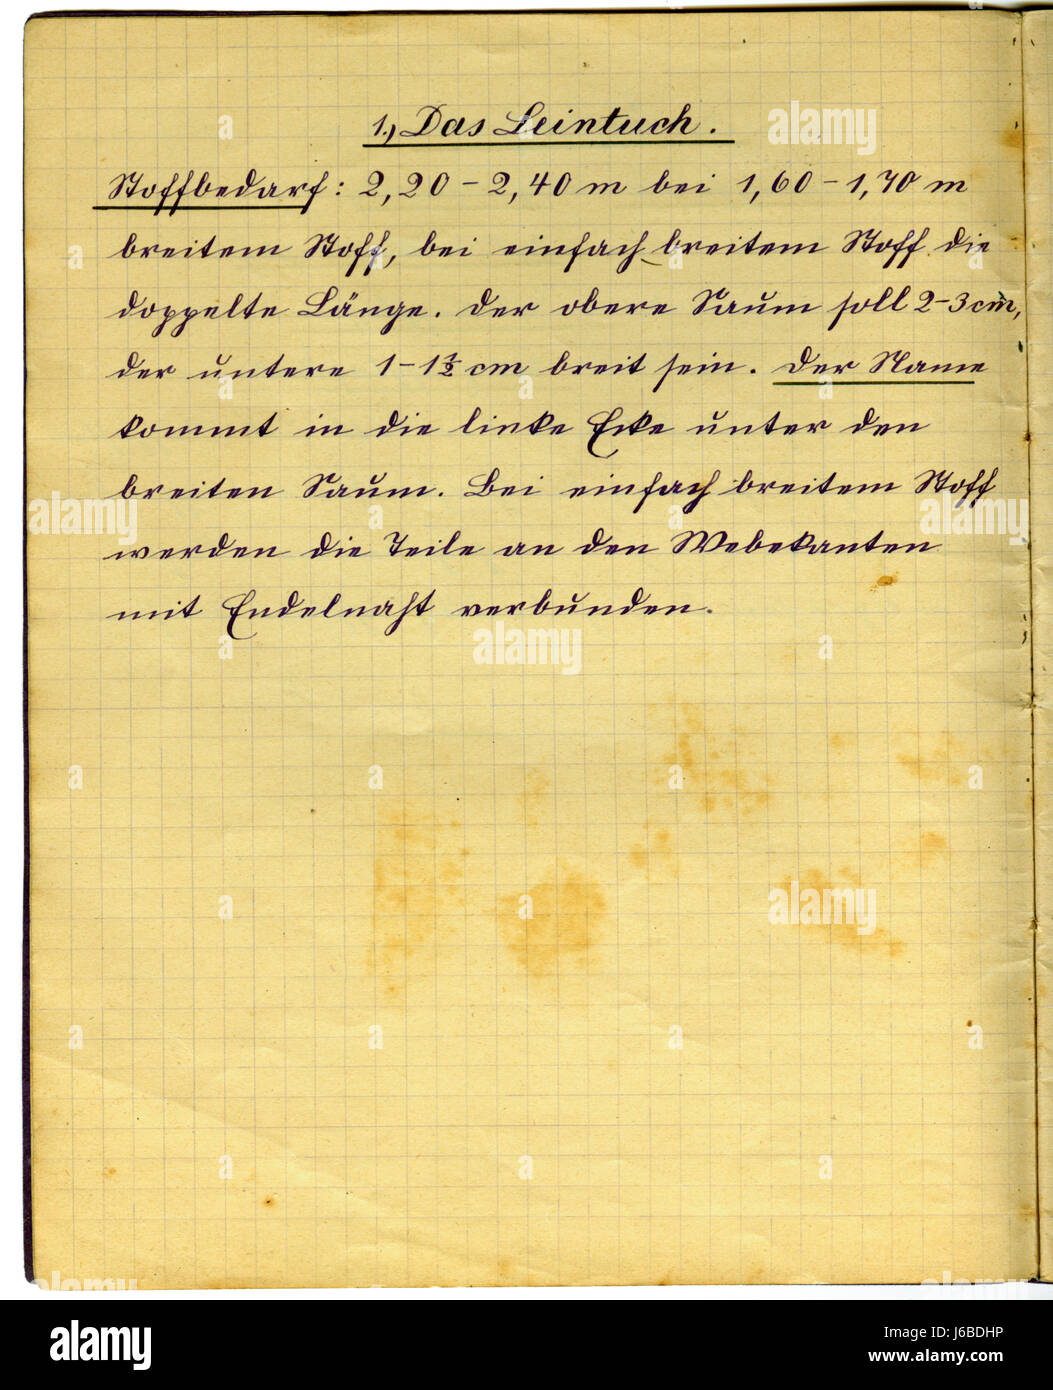 1.) Das Leintuch.
Stoffbedarf: 2,20 - 2,40 m bei 1,60 - 1,70 m
breitem Stoff, bei einfach breitem Stoff die
doppelte Länge. Der obere Saum soll 2-3 cm,
der untere 1-1½ cm breit sein. Der Name
kommt in die linke Ecke unter den
breiten Saum. Bei einfach breitem Stoff
werden die Teile an den Webekanten
mit Endelnaht verbunden.
alamy
Image ID: J6BDHP
www.alamy.com